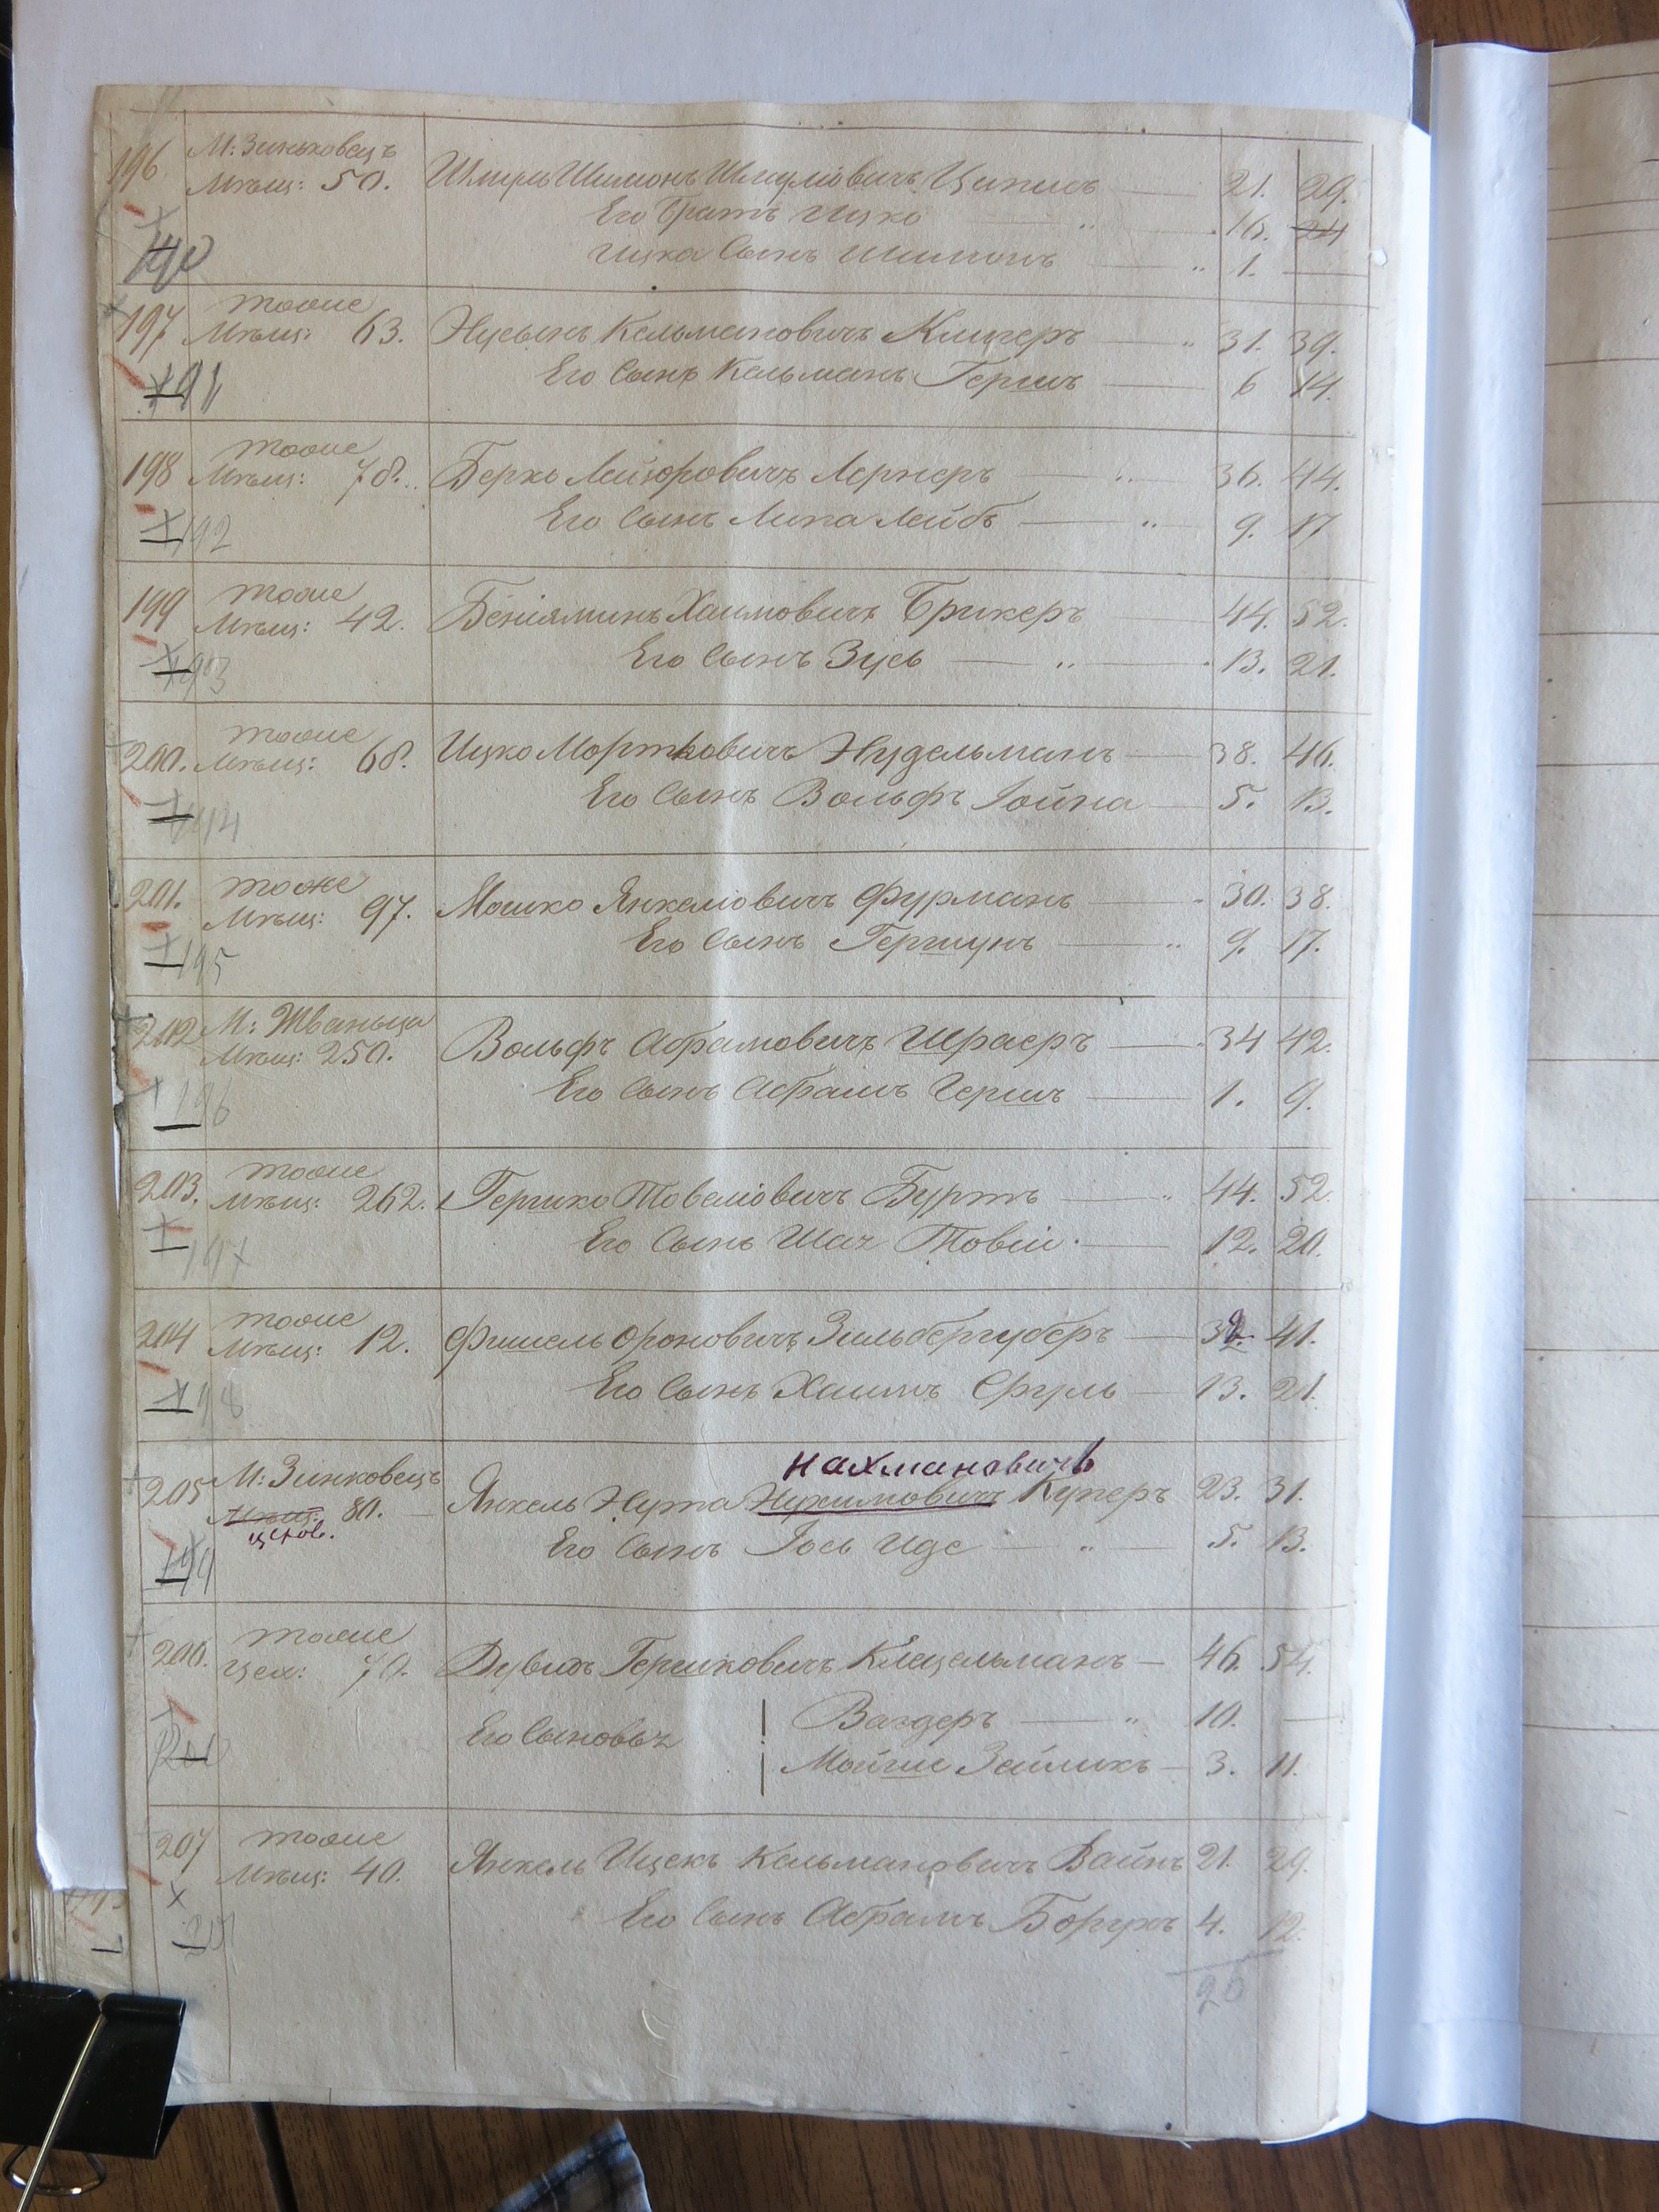 196 М: Зиньковецъ
Мѣщ: 50. Шмуль Шимонъ Шмуліовичъ Циписъ 21. 29.
Его Братъ Ицко 16. 24
190 Ицка Сынъ Шимонъ 1.
197 тоже
Мѣщ: 63. Нусынъ Кельмановичъ Клигеръ 31. 39.
191 Его Сынъ Кельманъ Гершъ 6 14.
198 тоже
Мѣщ: 78. Берко Лейзоровичъ Лернеръ 36. 44.
192 Его Сынъ Липа Лейбъ 9. 17
199 тоже
Мѣщ: 42. Беніяминъ Хаимовичъ Брикеръ 44. 52.
193 Его Сынъ Зусь 13. 21.
200. тоже
Мѣщ: 68. Ицко Мортковичъ Нудельманъ 38. 46.
194 Его Сынъ Вольфъ Іойна 5. 13.
201. тоже
Мѣщ: 97. Мошко Янкеліовичъ Фурманъ 30. 38.
195 Его Сынъ Гершунъ 9. 17.
202 М: Жванца
Мѣщ: 250. Вольфъ Абрамовичъ Шраеръ 34 42.
196 Его Сынъ Абрамъ Гершъ 1. 9.
203. тоже
Мѣщ: 262. Гершко Товеліовичъ Буртъ 44. 52.
197 Его Сынъ Шая Товіи 12. 20.
204 тоже
Мѣщ: 12. Фишель Ороновичъ Зильбергуберъ 41.
198 Его Сынъ Хаимъ Сруль 13. 21.
Нахмановичъ
205 М: Зинковецъ
Мѣщ: 80. Янкель Нута Нухимовичъ Куперъ 23. 31.
цехов.
199 Его Сынъ Іось Иде 5. 13.
206. тоже
Цех: 70. Дувидъ Гершковичъ Клецельманъ 46. 54.
200 Его Сыновья Вагдеръ 10.
Мойше Зейликъ 3. 11.
207 тоже
Мѣщ: 40. Янкель Ицекъ Кельмановичъ Вайнъ 21. 29.
201 Его Сынъ Абрамъ Борухъ 4. 12.
20